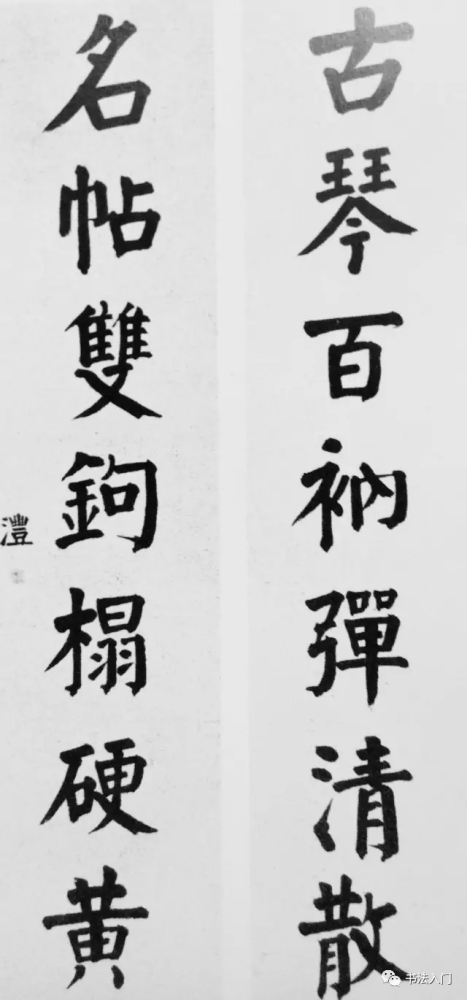 古琴百衲彈清散
名帖雙鉤榻硬黃
澧
书法入门